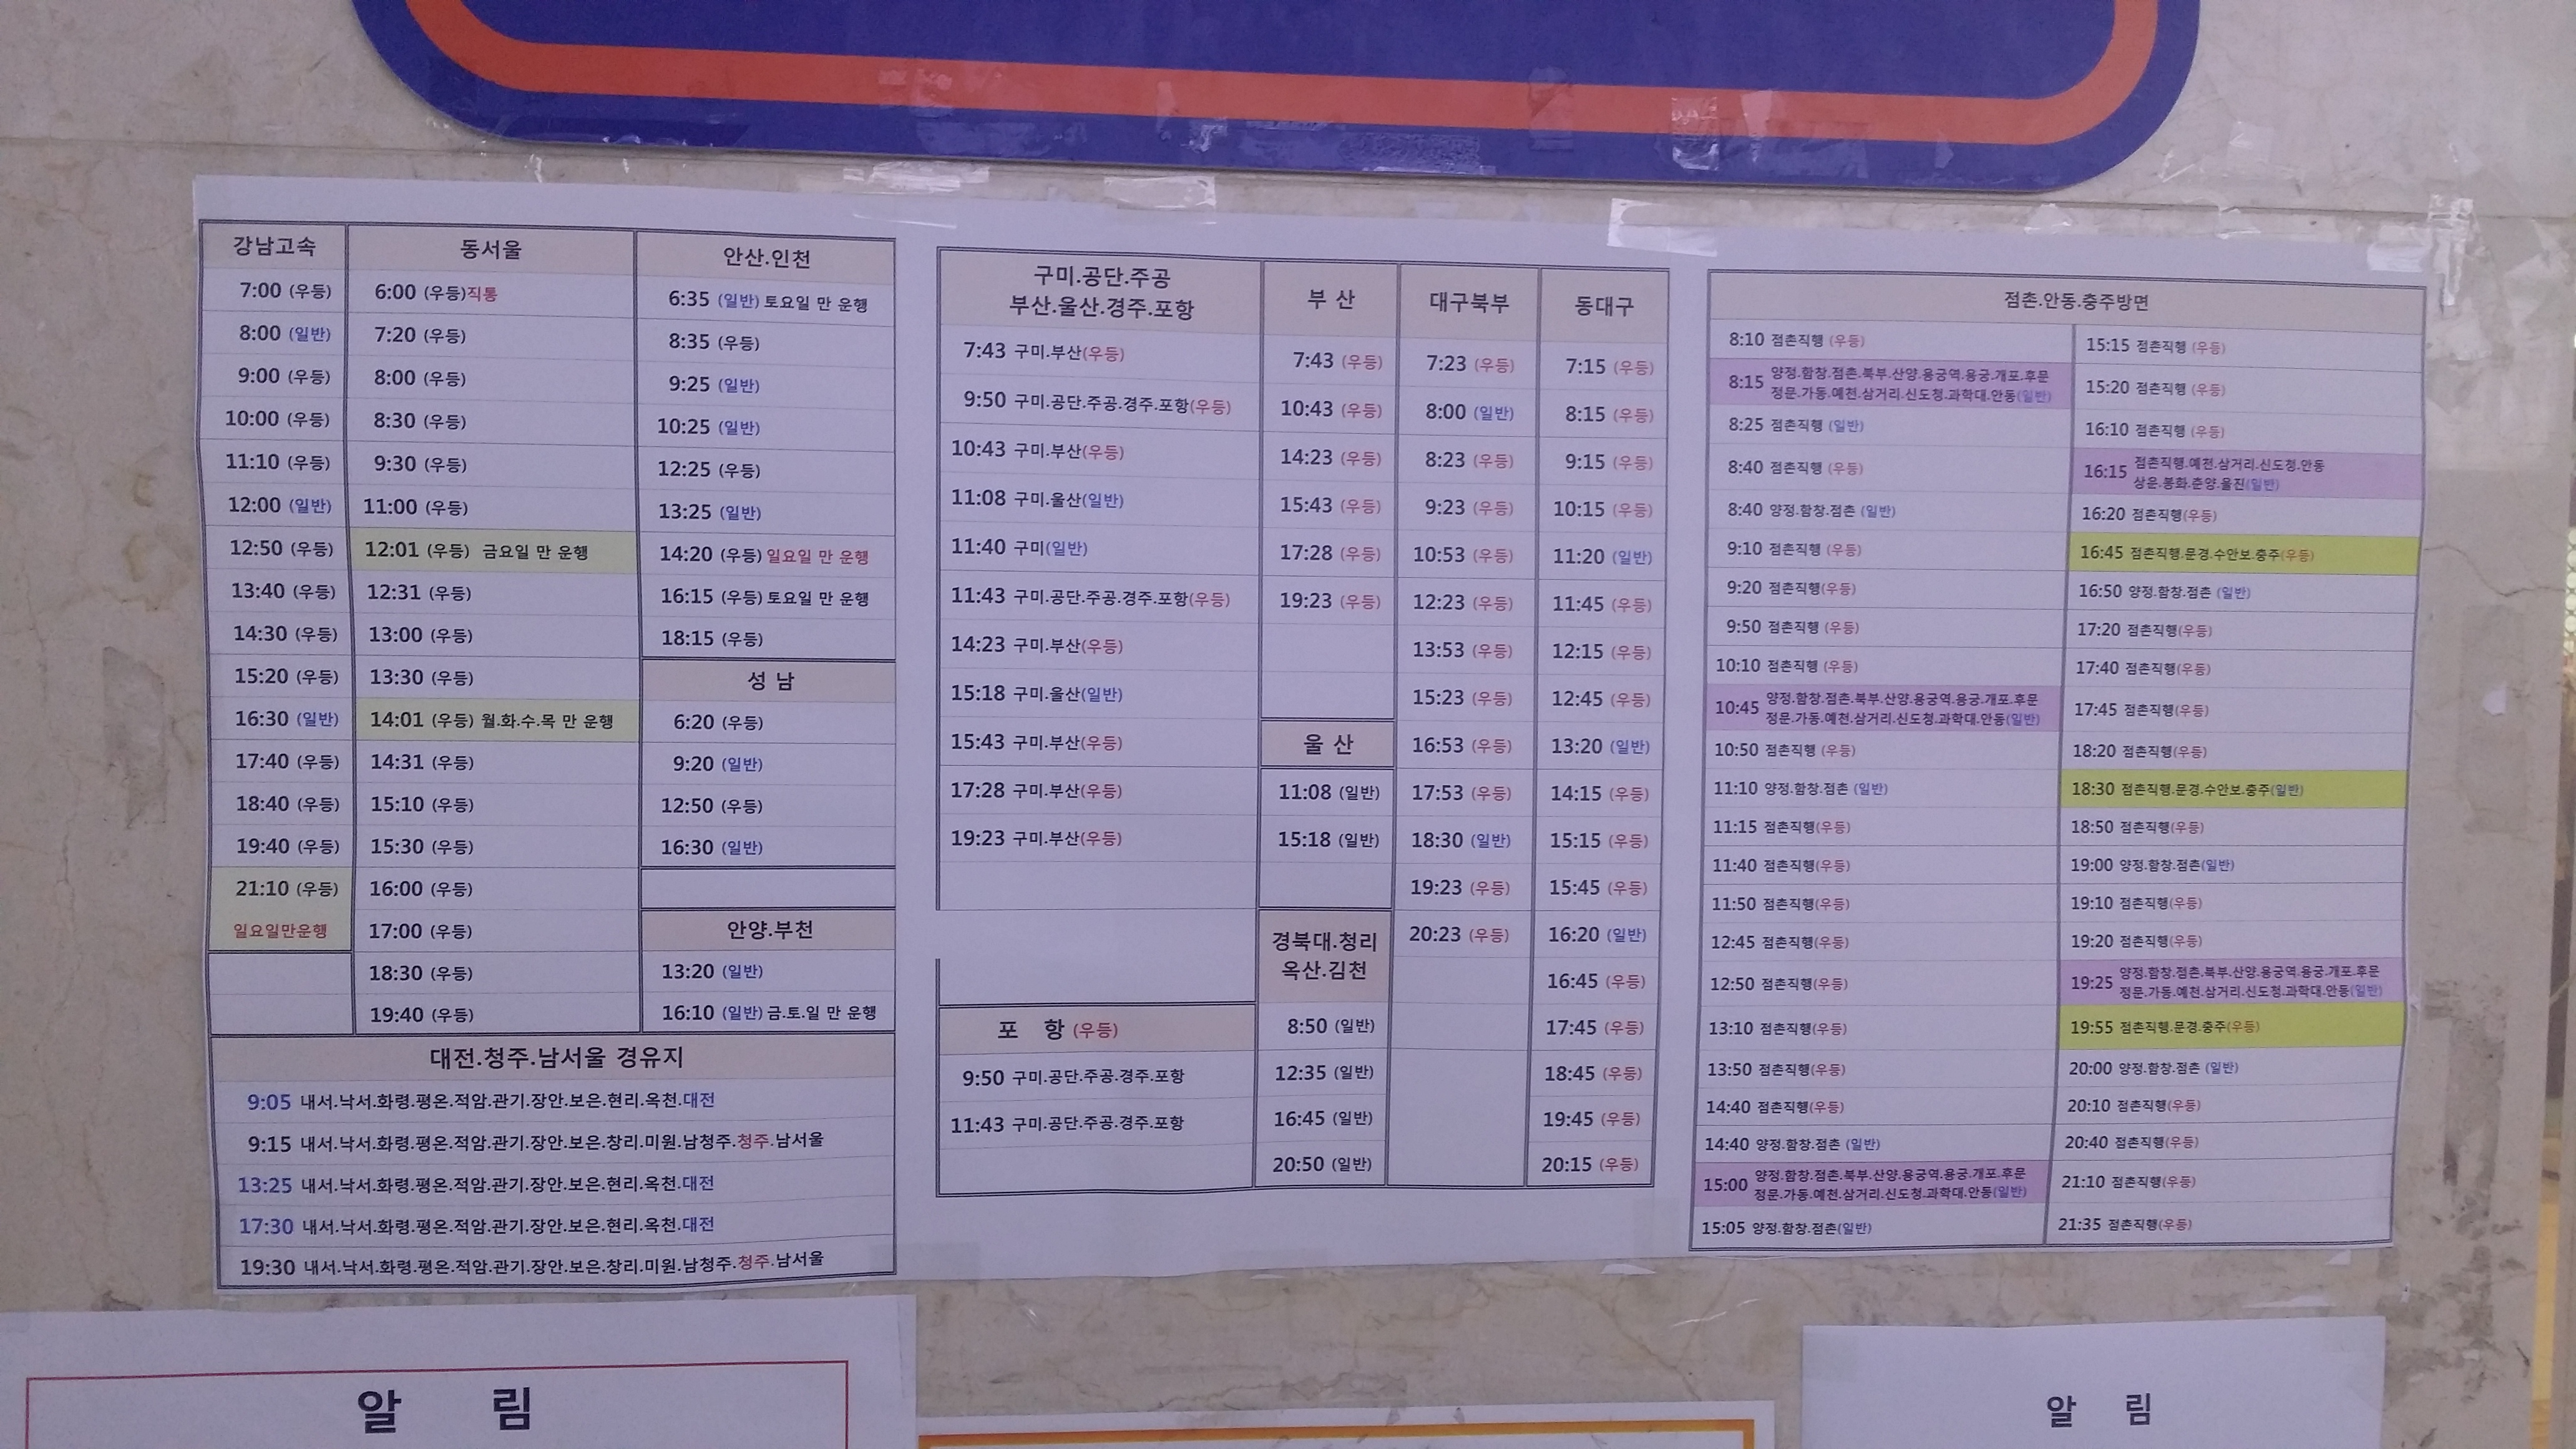 강남고속
7:00 (우등)
8:00 (일반)
9:00 (우등)
10:00 (우등)
11:10 (우등)
12:00 (일반)
12:50 (우등)
13:40 (우등)
14:30 (우등)
15:20 (우등)
16:30 (일반)
17:40 (우등)
18:40 (우등)
19:40 (우등)
21:10 (우등)
일요일만운행
동서울
6:00 (우등)직통
7:20 (우등)
8:00 (우등)
8:30 (우등)
9:30 (우등)
11:00 (우등)
12:01 (우등) 금요일 만 운행
12:31 (우등)
13:00 (우등)
13:30 (우등)
14:01 (우등) 월.화.수.목 만 운행
14:31 (우등)
15:10 (우등)
15:30 (우등)
16:00 (우등)
17:00 (우등)
18:30 (우등)
19:40 (우등)
안산.인천
6:35 (일반) 토요일 만 운행
8:35 (우등)
9:25 (일반)
10:25 (일반)
12:25 (우등)
13:25 (일반)
14:20 (우등) 일요일 만 운행
16:15 (우등) 토요일 만 운행
18:15 (우등)
성 남
6:20 (우등)
9:20 (일반)
12:50 (우등)
16:30 (일반)
안양.부천
13:20 (일반)
16:10 (일반) 금.토.일 만 운행
대전.청주.남서울 경유지
9:05 내서.낙서.화령.평온.적암.관기.장안.보은.현리.옥천.대전
9:15 내서.낙서.화령.평온.적암.관기.장안.보은.창리.미원.남청주.청주.남서울
13:25 내서.낙서.화령.평온.적암.관기.장안.보은.현리.옥천.대전
17:30 내서.낙서.화령.평온.적암.관기.장안.보은.현리.옥천.대전
19:30 내서.낙서.화령.평온.적암.관기.장안.보은.창리.미원.남청주.청주.남서울
구미.공단.주공
부산.울산.경주.포항
7:43 구미.부산(우등)
9:50 구미.공단.주공.경주.포항(우등)
10:43 구미.부산(우등)
11:08 구미.울산(일반)
11:40 구미(일반)
11:43 구미.공단.주공.경주.포항(우등)
14:23 구미.부산(우등)
15:18 구미.울산(일반)
15:43 구미.부산(우등)
17:28 구미.부산(우등)
19:23 구미.부산(우등)
포 항 (우등)
9:50 구미.공단.주공.경주.포항
11:43 구미.공단.주공.경주.포항
부 산
7:43 (우등)
10:43 (우등)
14:23 (우등)
15:43 (우등)
17:28 (우등)
19:23 (우등)
울 산
11:08 (일반)
15:18 (일반)
경북대.청리
옥산.김천
8:50 (일반)
12:35 (일반)
16:45 (일반)
20:50 (일반)
대구북부
7:23 (우등)
8:00 (일반)
8:23 (우등)
9:23 (우등)
10:53 (우등)
12:23 (우등)
13:53 (우등)
15:23 (우등)
16:53 (우등)
17:53 (우등)
18:30 (일반)
19:23 (우등)
20:23 (우등)
동대구
7:15 (우등)
8:15 (우등)
9:15 (우등)
10:15 (우등)
11:20 (일반)
11:45 (우등)
12:15 (우등)
12:45 (우등)
13:20 (일반)
14:15 (우등)
15:15 (우등)
15:45 (우등)
16:20 (일반)
16:45 (우등)
17:45 (우등)
18:45 (우등)
19:45 (우등)
20:15 (우등)
점촌.안동.충주방면
8:10 점촌직행 (우등)
8:15 양정.함창.점촌.북부.산양.용궁역.용궁.개포.후문
정문.가동.예천.삼거리.신도청.과학대.안동(일반)
8:25 점촌직행 (일반)
8:40 점촌직행 (우등)
8:40 양정.함창.점촌 (일반)
9:10 점촌직행 (우등)
9:20 점촌직행(우등)
9:50 점촌직행 (우등)
10:10 점촌직행 (우등)
10:45 양정.함창.점촌.북부.산양.용궁역.용궁.개포.후문
정문.가동.예천.삼거리.신도청.과학대.안동(일반)
10:50 점촌직행 (우등)
11:10 양정.함창.점촌 (일반)
11:15 점촌직행(우등)
11:40 점촌직행(우등)
11:50 점촌직행(우등)
12:45 점촌직행(우등)
12:50 점촌직행(우등)
13:10 점촌직행(우등)
13:50 점촌직행(우등)
14:40 점촌직행(우등)
14:40 양정.함창.점촌 (일반)
15:00 양정.함창.점촌.북부.산양.용궁역.용궁.개포.후문
정문.가동.예천.삼거리.신도청.과학대.안동(일반)
15:05 양정.함창.점촌(일반)
15:15 점촌직행 (우등)
15:20 점촌직행 (우등)
16:10 점촌직행 (우등)
16:15 점촌직행.예천.삼거리.신도청.안동
상운.봉화.춘양.울진(일반)
16:20 점촌직행(우등)
16:45 점촌직행.문경.수안보.충주(우등)
16:50 양정.함창.점촌 (일반)
17:20 점촌직행(우등)
17:40 점촌직행(우등)
17:45 점촌직행(우등)
18:20 점촌직행(우등)
18:30 점촌직행.문경.수안보.충주(일반)
18:50 점촌직행(우등)
19:00 양정.함창.점촌(일반)
19:10 점촌직행(우등)
19:20 점촌직행(우등)
19:25 양정.함창.점촌.북부.산양.용궁역.용궁.개포.후문
정문.가동.예천.삼거리.신도청.과학대.안동(일반)
19:55 점촌직행.문경.충주(우등)
20:00 양정.함창.점촌 (일반)
20:10 점촌직행(우등)
20:40 점촌직행(우등)
21:10 점촌직행(우등)
21:35 점촌직행(우등)
알 림
알 림